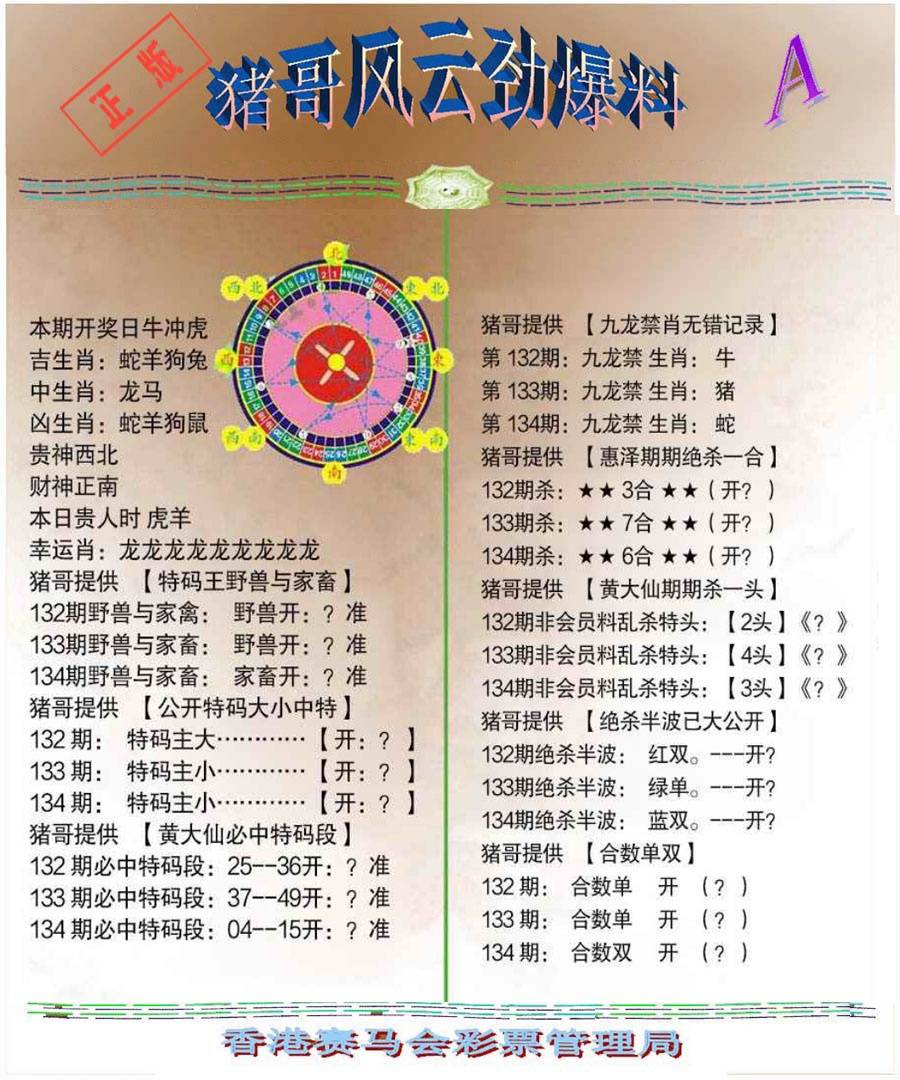 正版
猪哥风云劲爆料
A
北
西北
東北
西
東
西南
東南
南
本期开奖日牛冲虎
吉生肖：蛇羊狗兔
中生肖：龙马
凶生肖：蛇羊狗鼠
贵神西北
财神正南
本日贵人时 虎羊
幸运肖：龙龙龙龙龙龙龙龙龙
猪哥提供 【特码王野兽与家畜】
132期野兽与家禽： 野兽开：？准
133期野兽与家畜： 野兽开：？准
134期野兽与家畜： 家畜开：？准
猪哥提供 【公开特码大小中特】
132 期： 特码主大…………【开：？ 】
133 期： 特码主小…………【开：？ 】
134 期： 特码主小…………【开：？ 】
猪哥提供 【黄大仙必中特码段】
132 期必中特码段：25--36开：？准
133 期必中特码段：37--49开：？准
134 期必中特码段：04--15开：？准
猪哥提供 【九龙禁肖无错记录】
第 132期：九龙禁 生肖： 牛
第 133期：九龙禁 生肖： 猪
第 134期：九龙禁 生肖： 蛇
猪哥提供 【惠泽期期绝杀一合】
132期杀：★★ 3合 ★★（开？ ）
133期杀：★★ 7合 ★★（开？ ）
134期杀：★★ 6合 ★★（开？ ）
猪哥提供 【黄大仙期期杀一头】
132期非会员料乱杀特头：【2头】《？ 》
133期非会员料乱杀特头：【4头】《？ 》
134期非会员料乱杀特头：【3头】《？ 》
猪哥提供 【绝杀半波已大公开】
132期绝杀半波： 红双。---开?
133期绝杀半波： 绿单。---开?
134期绝杀半波： 蓝双。---开?
猪哥提供 【合数单双】
132 期： 合数单 开 （？ ）
133 期： 合数单 开 （？ ）
134 期： 合数双 开 （？ ）
香港赛马会彩票管理局